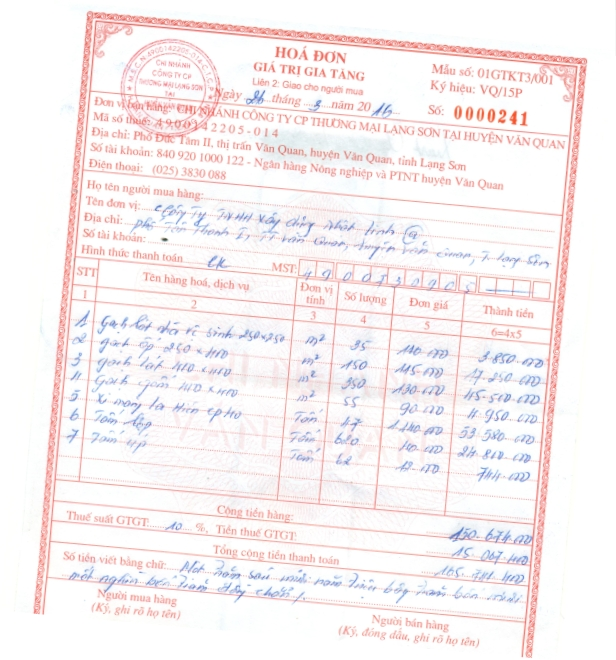 HOÁ ĐƠN
GIÁ TRỊ GIA TĂNG
Liên 2: Giao cho người mua
Ngày 26 tháng 3 năm 2016
Mẫu số: 01GTKT3/001
Ký hiệu: VQ/15P
Số: 0000241
CHI NHÁNH
CÔNG TY CP
THƯƠNG MẠI LẠNG SƠN
TẠI
Đơn vị bán hàng: CHI NHÁNH CÔNG TY CP THƯƠNG MẠI LẠNG SƠN TẠI HUYỆN VĂN QUAN
Mã số thuế: 4900142205-014
Địa chỉ: Phố Đức Tâm II, thị trấn Văn Quan, huyện Văn Quan, tỉnh Lạng Sơn
Số tài khoản: 840 920 1000 122 - Ngân hàng Nông nghiệp và PTNT huyện Văn Quan
Điện thoại: (025) 3830 088
Họ tên người mua hàng:
Tên đơn vị: Công ty TNHH xây dựng
Địa chỉ: phố Tân Thanh I, TT Văn Quan, huyện Văn Quan, T. Lạng Sơn
Số tài khoản:
Hình thức thanh toán CK MST:
STT Tên hàng hoá, dịch vụ Đơn vị tính Số lượng Đơn giá Thành tiền
1 2 3 4 5 6=4x5
1 Gạch lát nhà vệ sinh 250x250 m² 35 110 000 3.850.000
2 gạch ốp 250 x 400 m² 150 115 000 17 250 000
3 gạch lát 400 x 400 m² 350 130 000 45 500 000
4 Gạch gốm 400 x 400 m² 55 90 000 4 950 000
5 Xi măng La Hiên Tấn 47 1.140.000 53 580 000
6 Tấm Tấm 620 40 000 24 800 000
7 Tấm úp Tấm 62 12 000 744 000
Cộng tiền hàng: 150.674.000
Thuế suất GTGT: 10 %, Tiền thuế GTGT: 15 067 400
Tổng cộng tiền thanh toán 165.741.400
Số tiền viết bằng chữ: Một trăm sáu mươi năm triệu bảy trăm bốn mươi
mốt nghìn bốn trăm đồng chẵn /.
Người mua hàng
(Ký, ghi rõ họ tên)
Người bán hàng
(Ký, đóng dấu, ghi rõ họ tên)